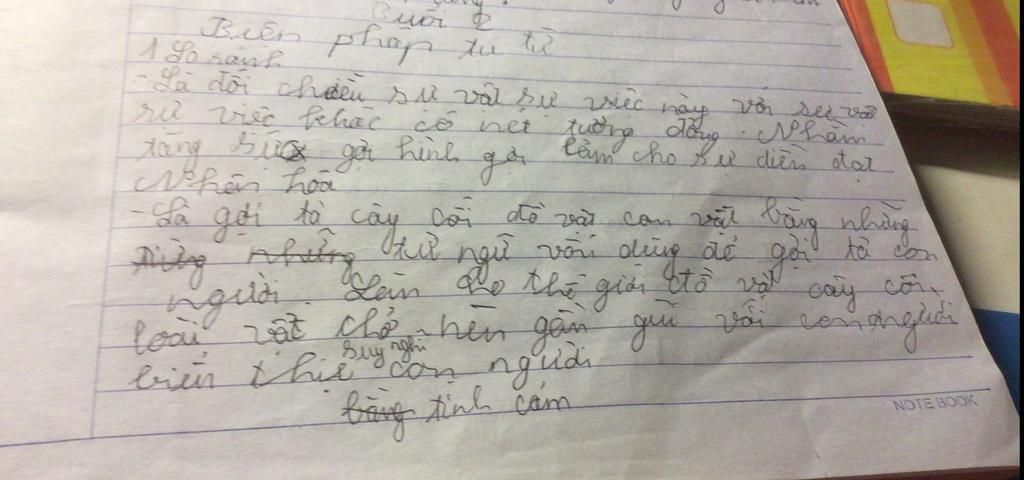 Buổi 2
Biện pháp tu từ
1 So sánh
- Là đối chiếu sự vật sự việc này với sự vật
sự việc khác có nét tương đồng. Nhằm
tăng sức gợi hình gợi cảm cho sự diễn đạt
Nhân hóa
- Là gọi tả cây cối đồ vật con vật bằng những
từ ngữ vốn dùng để gọi tả con
người. Làm cho thế giới đồ vật cây cối,
loài vật trở nên gần gũi với con người
biển thị suy nghĩ con người
bằng tình cảm
NOTE BOOK